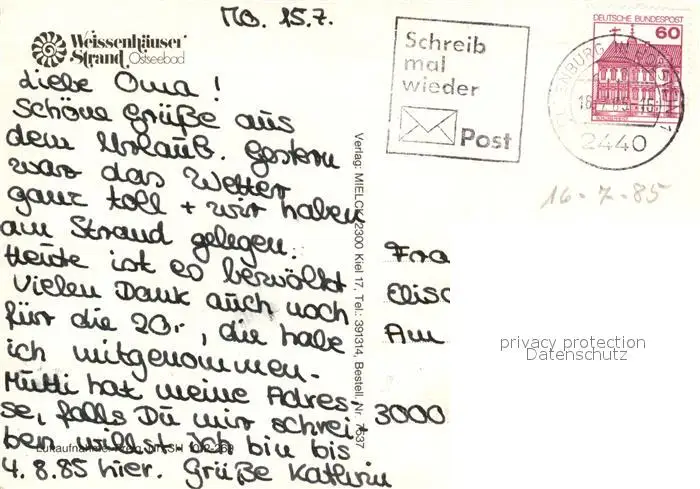 Mo. 15.7.
Weissenhäuser
Strand Ostseebad
Liebe Oma!
Schöne Grüße aus
dem Urlaub. Gestern
war das Wetter
ganz toll + wir haben
am Strand gelegen.
Heute ist es bewölkt
Vielen Dank auch noch
für die 20,-, die habe
ich mitgenommen.
Mutti hat meine Adres-
se, falls Du mir schrei-
ben willst. Ich bin bis
4.8.85 hier. Grüße Kathrin
Verlag: MIELCK, 2300 Kiel 17, Tel.: 391314, Bestell. Nr. 7537
Schreib
mal
wieder
Post
DEUTSCHE BUNDESPOST
60
2440
16-7-85
Fra
Elisa
Am
3000
privacy protection
Datenschutz